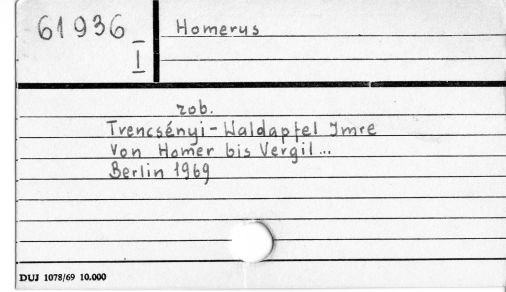 61936
I
Homerus
zob.
Trencsényi-Waldapfel Imre
Von Homer bis Vergil...
Berlin 1969
DUJ 1078/69 10.000